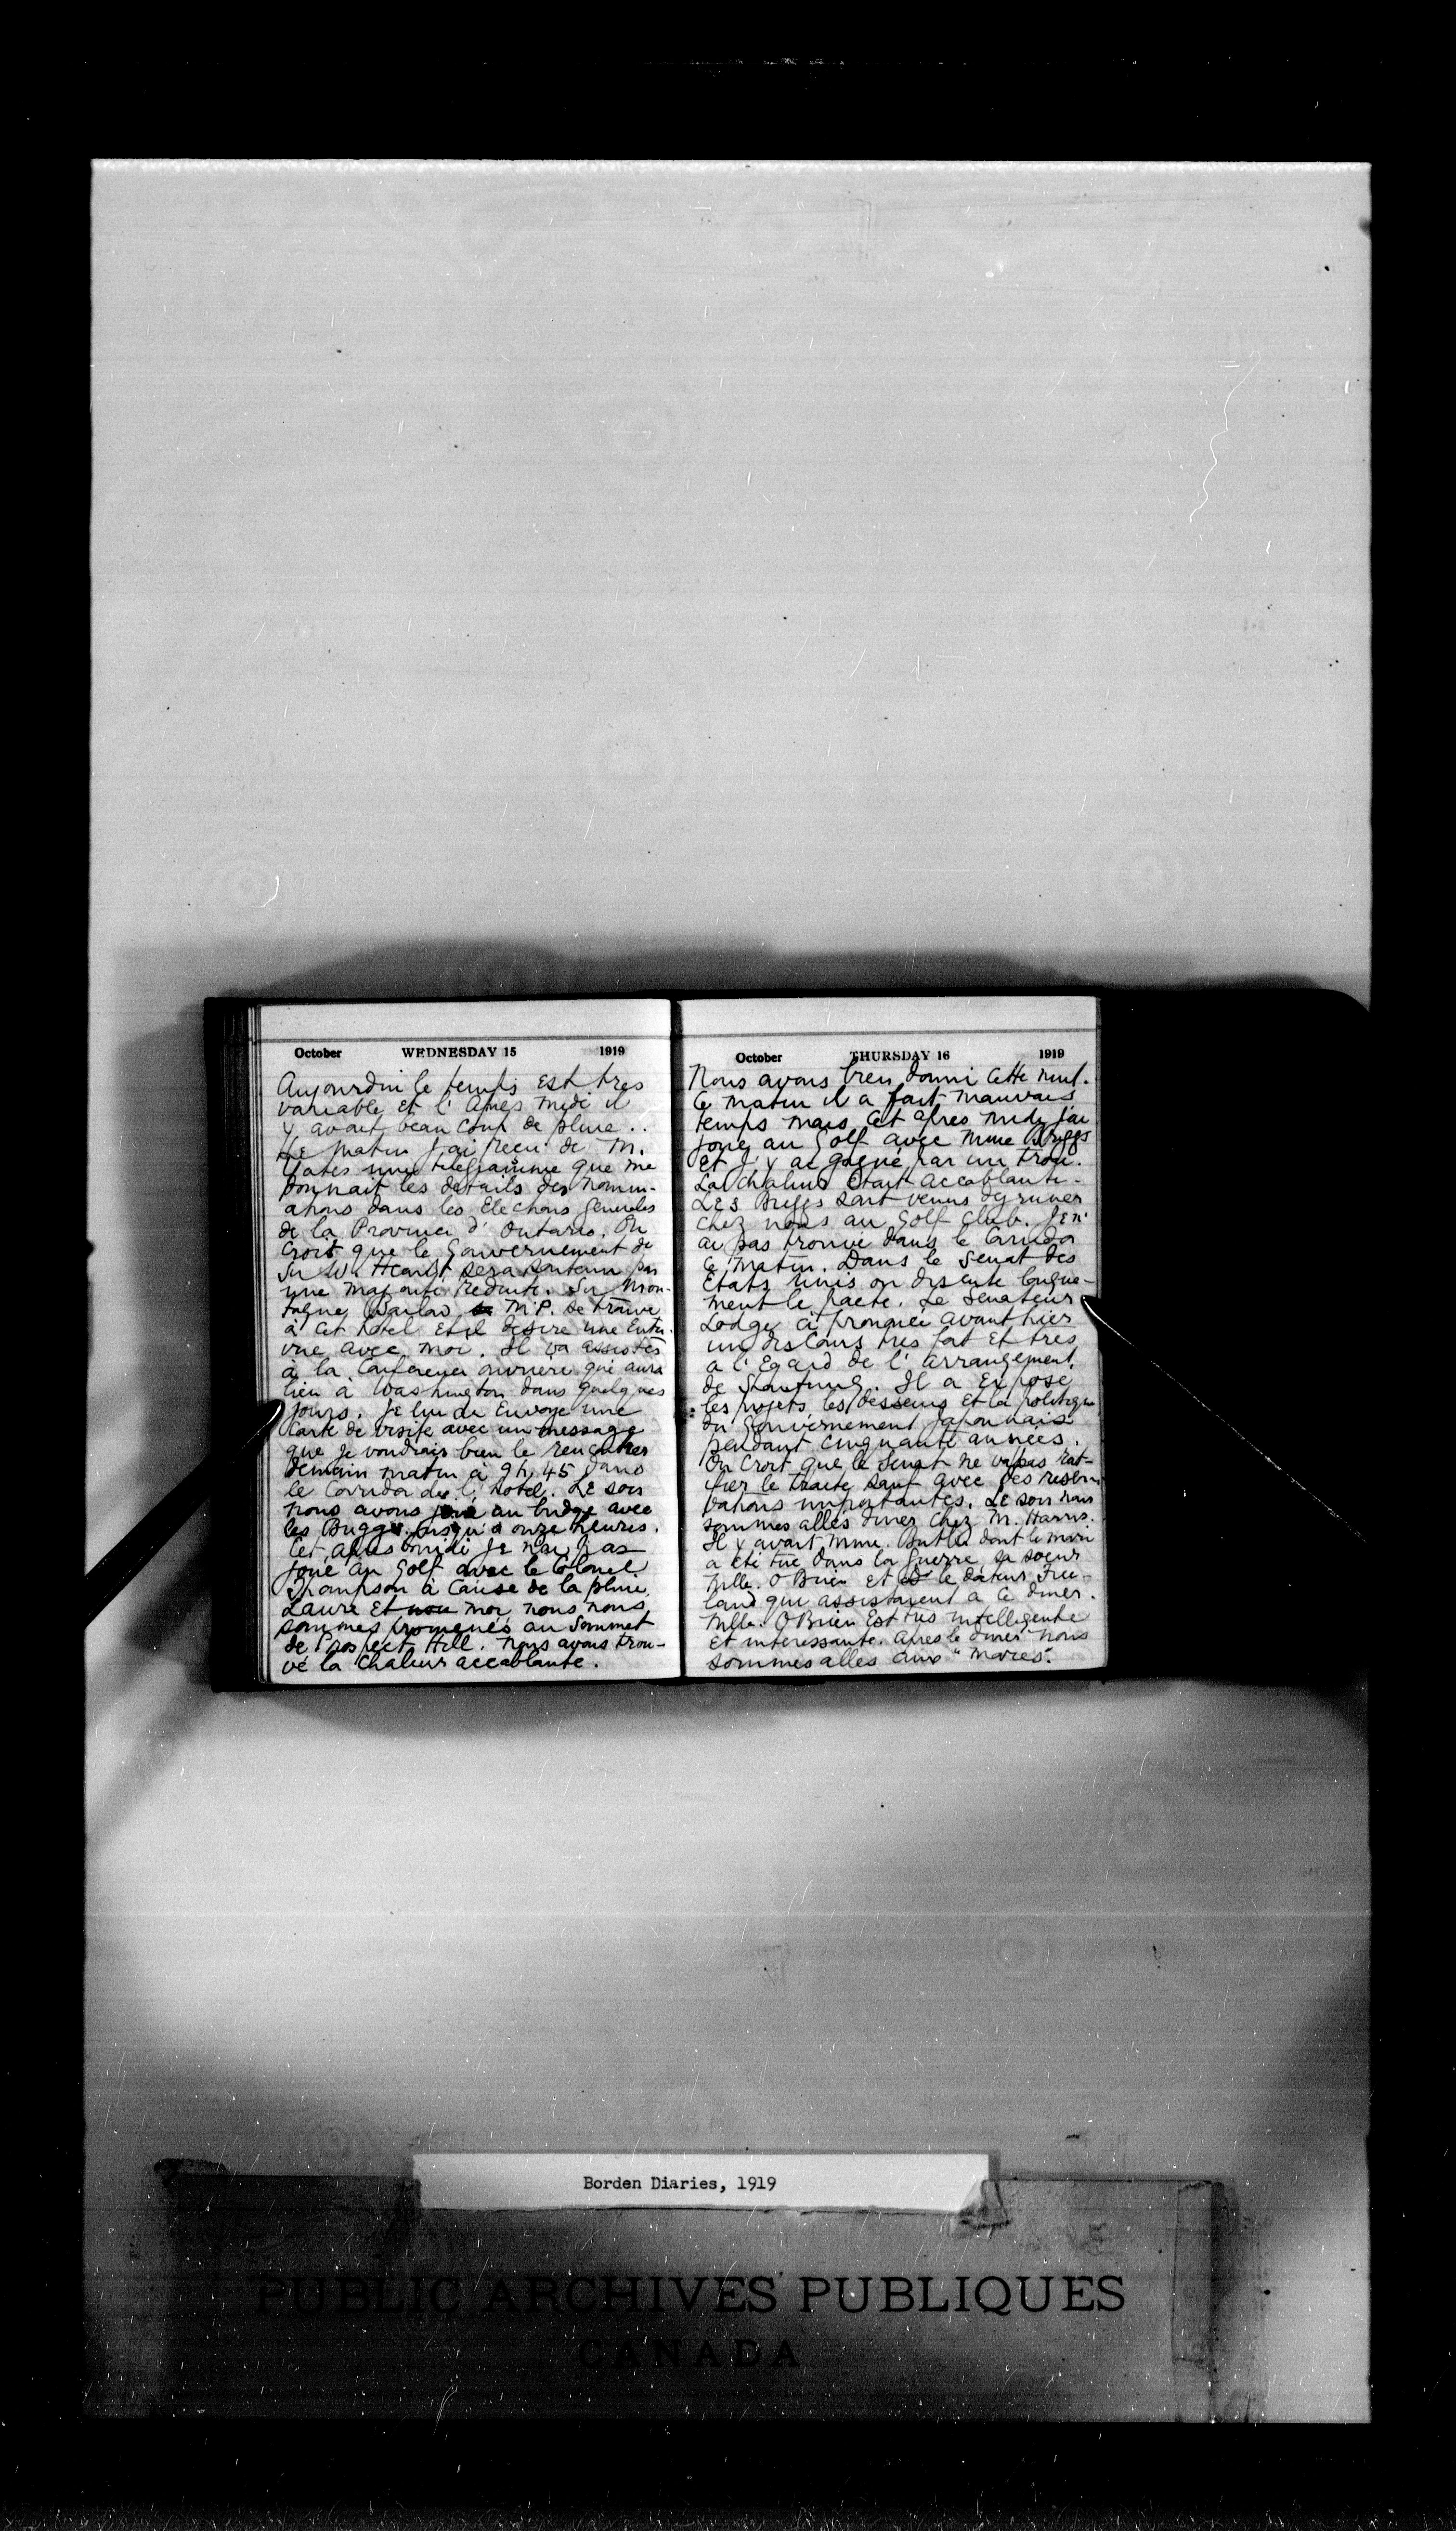 October WEDNESDAY 15 1919
Aujourdui le temps est tres
variable et l' Apres midi il
y avait beau coup de pluie ..
Le matin J'ai Recu de M.
Yates une telegramme que me
donnait les details des nomin-
ations dans les Elections generales
de la Province d' Ontario. On
Croit que le Gouvernement de
Sir Wm Hearst sera soutenu par
une majorite Reduite. Sir Mon-
tague Barlow M.P. se trouve
a cet hotel et il desire une Entre-
vue avec moi. Il va assister
à la Conference ouvriere qui aura
lieu a Washington dans quelques
jours. Je lui ai Envoye une
Carte de visite avec un message
que je voudrais bien le rencontrer
demain matin à 9h, 45 dans
le Corridor de l' hotel. Le soir
nous avons joué au bridge avec
les Buggs. Jusqu'a onze heures.
Cet apres midi Je n'ai pas
joué au Golf avec le Colonel
Thompson à Cause de la pluie.
Laure et moi nous nous
sommes promenés au Sommet
de Prospect Hill. Nous avons trou-
vé la chaleur accablante.
October THURSDAY 16 1919
Nous avons bien dormi cette nuit.
Ce matin il a fait mauvais
temps mais cet apres midi j'ai
joué au Golf avec Mme
Et J'y ai gagné par un trou.
La chaleur etait accablante.
Les sont venus dejeuner
chez nous au Golf Club. Je n'
ai pas trouvé dans le Corridor
Ce matin. Dans le Senat des
Etats Unis on discute longue-
ment le pacte. Le Senateur
Lodge à prononcé avant hier
un discours tres fort et tres
a l' Egard de l' arrangement.
de Shantung. Il a Exposé
les projets les desseins et la politique
du Gouvernement Japonnais
pendant cinquante annees.
On Croit que le Senat ne va pas rat-
ifier le traite sauf avec des reser-
vations importantes. Le soir nous
sommes alles diner chez M. Harris.
Il y avait Mme. Butler dont le mari
a eté tué dans la guerre, sa soeur
Mlle. O Brien et le docteur Free-
land qui assistaient a ce diner.
Mlle. O Brien Est tres intelligente
Et interessante. Apres le diner nous
sommes alles aux "
Borden Diaries, 1919
PUBLIC ARCHIVES PUBLIQUES
CANADA